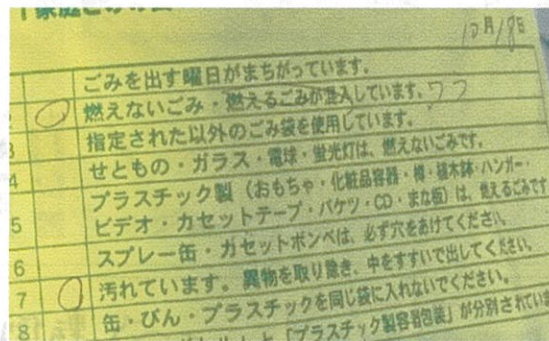 10月18日
ごみを出す曜日がまちがっています。
燃えないごみ・燃えるごみが混入しています。フフ
3 指定された以外のごみ袋を使用しています。
4 せともの・ガラス・電球・蛍光灯は、燃えないごみです。
プラスチック製（おもちゃ・化粧品容器・樽・植木鉢・ハンガー・
5 ビデオ・カセットテープ・バケツ・CD・まな板）は、燃えるごみです
6 スプレー缶・カセットボンベは、必ず穴をあけてください。
7 汚れています。異物を取り除き、中をすすいで出してください。
8 缶・びん・プラスチックを同じ袋に入れないでください。
と「プラスチック製容器包装」が分別されていま